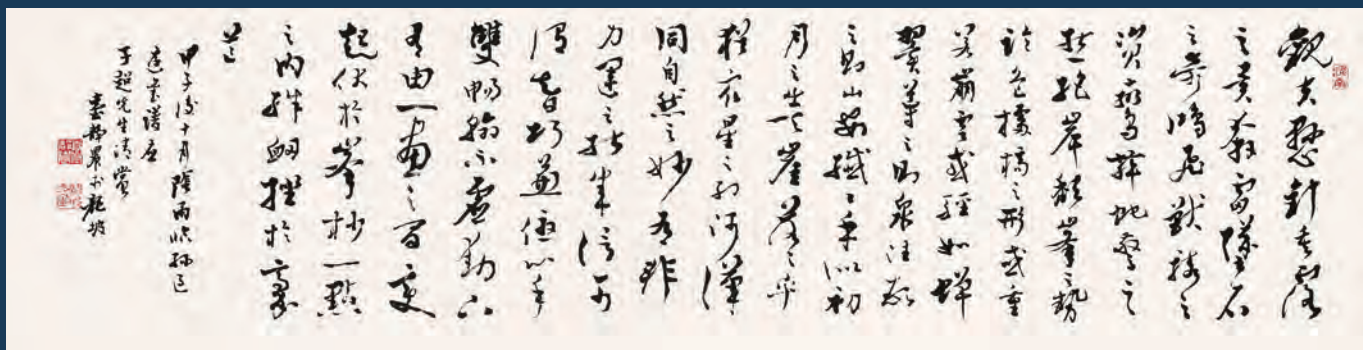 觀夫懸針垂露
之異奔雷墜石
之奇鴻飛獸駭之
資鸞舞蛇驚之
態絕岸頹峯之勢
臨危據槁之形或重
若崩雲或輕如蟬
翼導之則泉注頓
之則山安纖纖乎似初
月之出天崖落落乎
猶眾星之列河漢
同自然之妙有非
力運之能成信可
謂智巧兼優心手
雙暢翰不虛動下
有由一畫之間變
起伏於峯杪一點
之內殊衄挫於豪
芒
甲子後十月陰雨臨孫過
庭書譜應
子超先生清賞
臺靜農於龍坡